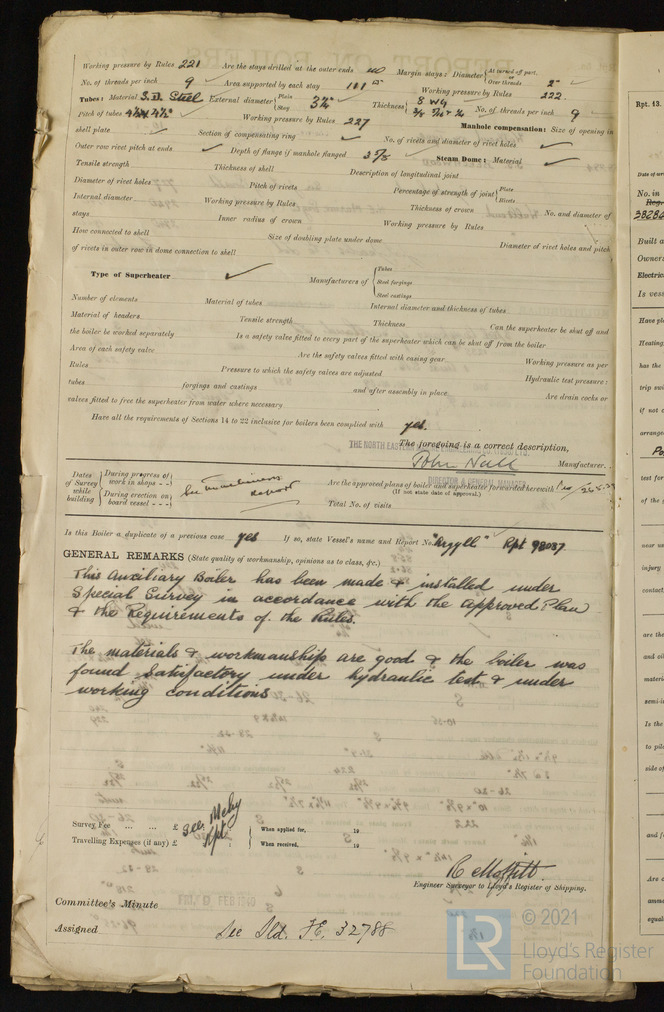 Working pressure by Rules 221 Are the stays drilled at the outer ends no Margin stays: Diameter { At turned off part, or Over threads 2"
No. of threads per inch 9 Area supported by each stay 101 □" Working pressure by Rules 222.
Tubes: Material S.D. Steel External diameter { Plain Stay 3¼" Thickness { 8 WG No. of threads per inch 9
Pitch of tubes Working pressure by Rules 227 Manhole compensation: Size of opening in
shell plate Section of compensating ring No. of rivets and diameter of rivet holes
Outer row rivet pitch at ends Depth of flange if manhole flanged 3⅜ Steam Dome: Material
Tensile strength Thickness of shell Description of longitudinal joint
Diameter of rivet holes Pitch of rivets Percentage of strength of joint { Plate Rivets
Internal diameter Working pressure by Rules Thickness of crown No. and diameter of
stays Inner radius of crown Working pressure by Rules
How connected to shell Size of doubling plate under dome Diameter of rivet holes and pitch
of rivets in outer row in dome connection to shell
Type of Superheater Manufacturers of { Tubes Steel forgings Steel castings
Number of elements Material of tubes Internal diameter and thickness of tubes
Material of headers Tensile strength Thickness Can the superheater be shut off and
the boiler be worked separately Is a safety valve fitted to every part of the superheater which can be shut off from the boiler
Area of each safety valve Are the safety valves fitted with easing gear Working pressure as per
Rules Pressure to which the safety valves are adjusted Hydraulic test pressure:
tubes forgings and castings and after assembly in place Are drain cocks or
valves fitted to free the superheater from water where necessary
Have all the requirements of Sections 14 to 22 inclusive for boilers been complied with yes.
The foregoing is a correct description,
John Neill Manufacturer.
DIRECTOR & GENERAL MANAGER
Dates of Survey while building { During progress of work in shops - - During erection on board vessel - - - } See machinery report Are the approved plans of boiler and superheater forwarded herewith
(If not state date of approval.)
Total No. of visits
Is this Boiler a duplicate of a previous case yes If so, state Vessel's name and Report No. "Argyll" Rpt 98037
GENERAL REMARKS (State quality of workmanship, opinions as to class, &c.)
This Auxiliary Boiler has been made & installed under
Special Survey in accordance with the approved Plan
& the Requirements of the Rules.
The materials & workmanship are good & the boiler was
found satisfactory under hydraulic test & under
working conditions
Survey Fee ... ... £ See Mchy Rpt. When applied for, 19
Travelling Expenses (if any) £ When received, 19
R. Moffitt.
Engineer Surveyor to Lloyd's Register of Shipping.
Committee's Minute FRI. 9 FEB 1940
Assigned See Sld. F.E. 32788
Rpt. 13.
No. in
Reg.
Built a
Owners
Electric
Is vess
Have pl
Heating
has the
trip swi
if not
arrange
test for
of the
injury
contact
are the
and oil
materi
semi-i
Is the
to pilo
side of
and f
Are
amme
equal
LR © 2021
Lloyd's Register
Foundation